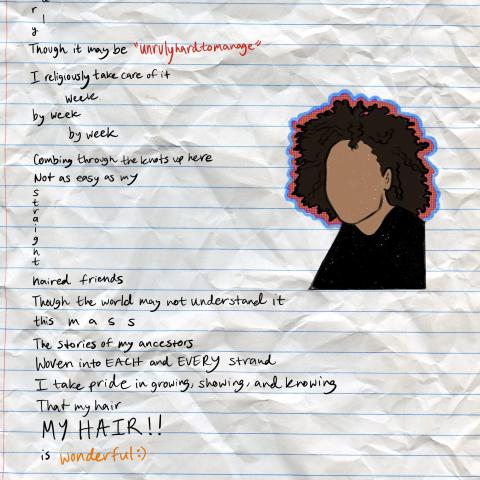 r l
y
Though it may be "unrulyhardtomanage"
I religiously take care of it
week
by week
by week
Combing through the knots up here
Not as easy as my
s
t
r
a
i
g
h
t
haired friends
Though the world may not understand it
this m a s s
The stories of my ancestors
Woven into EACH and EVERY strand
I take pride in growing, showing, and knowing
That my hair
MY HAIR!!
is wonderful:)